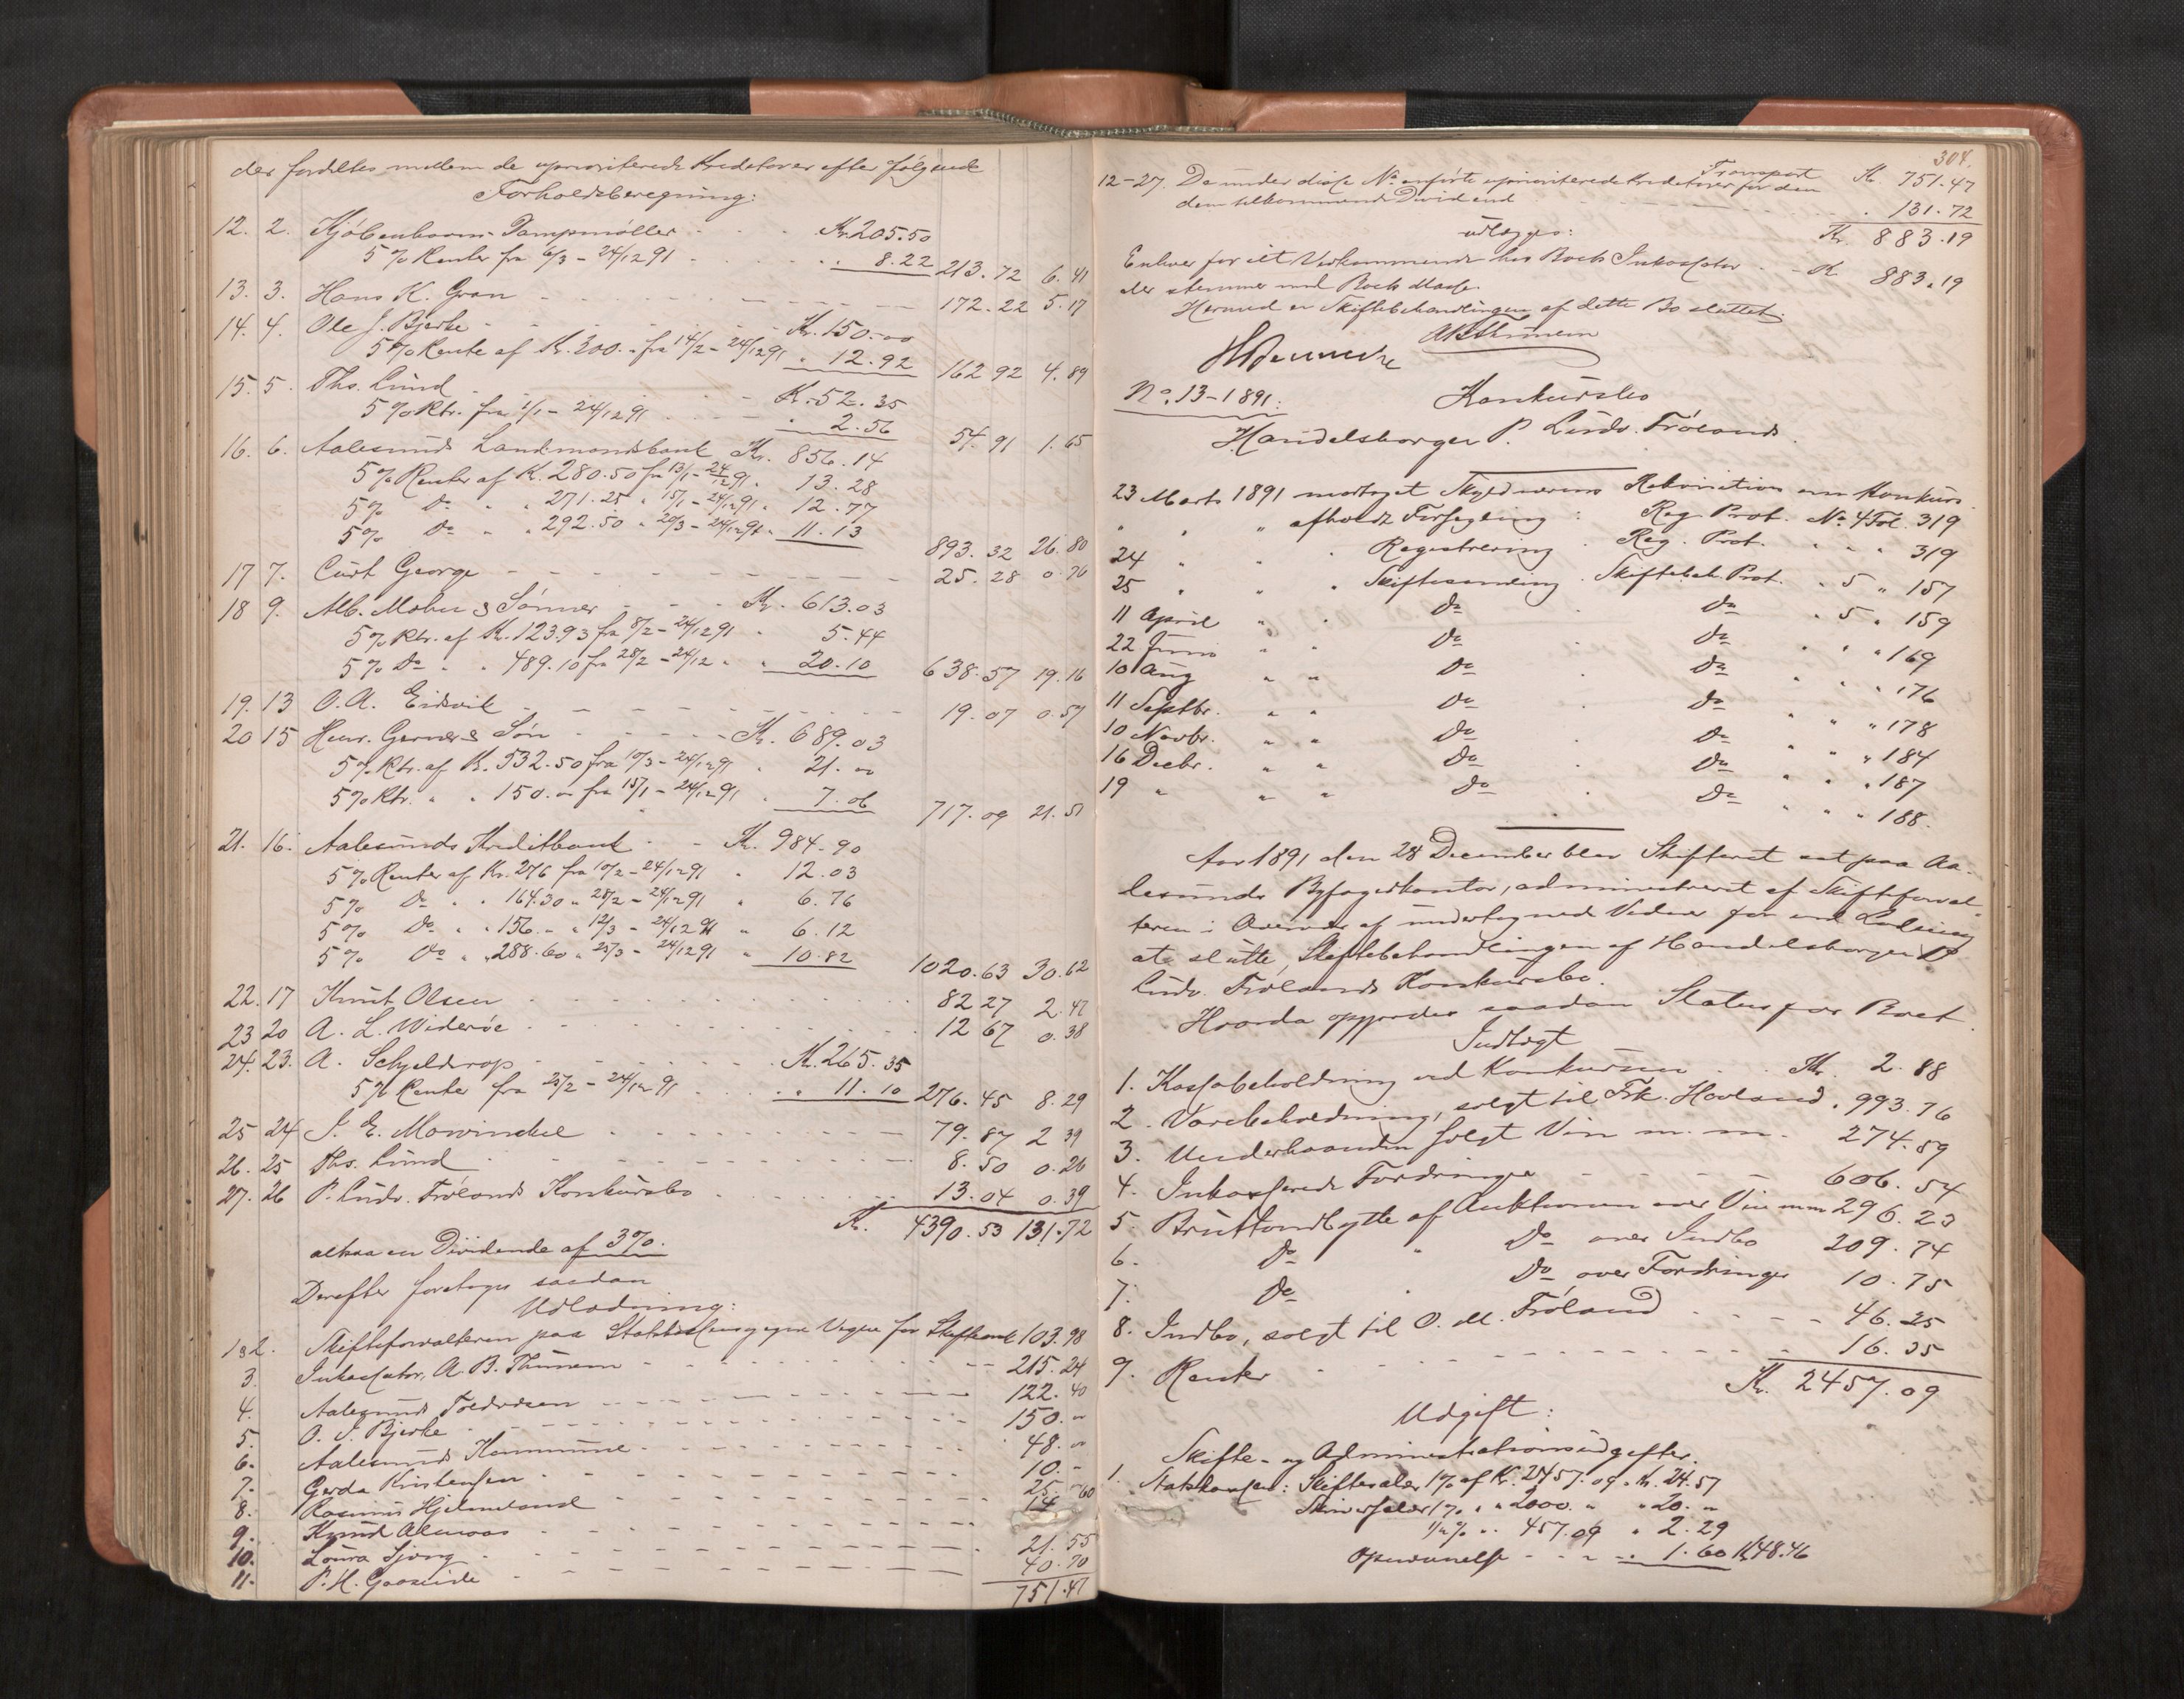 der fordeles mellem de uprioriterede Kreditorer efter følgende
Forholdsberegning:
12. 2. Kjøbenhavns Dampmøller - - - Kr. 205.50
5 % Renter fra 6/3 - 24/12 91 - - - 8.22 213.72 6.41
13. 3. Hans K. Gran - - - 172.22 5.17
14. 4. Ole J. Bjerke - - - Kr. 150.00
5 % Rente af Kr. 300.- fra 14/2 - 24/12 91 " 12.92 162 92 4.89
15. 5. Ths. Lund - - - Kr. 52.35
5 % Rtr. fra 1/1 - 24/12 91 . . 2.56 54.91 1.65
16. 6. Aalesunds Landmandsbank Kr. 856.14
5 % Renter af Kr. 280.50 fra 13/1 - 24/12 91 . 13.28
5 % Do " " 271.25 " 15/1 - 24/12 91 " 12.77
5 % Do " " 292.50 " 20/3 - 24/12 91 " 11.13
893.32 26.80
17 7. Curt George - - - 25.28 0.76
18 9. Alb. Mohn & Sønner - - - Kr. 613.03
5 % Rtr. af Kr. 123.93 fra 8/2 - 24/12 91 " 5.44
5 % Do " " 489.10 fra 28/2 - 24/12 " " 20.10 638.57 19.16
19. 13 O. A. Eidsvik - - - 19.07 0.57
20 15 Henr. Gerner & Søn - - - Kr. 689.03
5 % Rtr. af Kr. 532.50 fra 10/3 - 24/12 91 . 21.00
5 % Rtr. " " 150.00 fra 15/1 - 24/12 91 " 7.06
717.09 21.51
21. 16. Aalesunds Kreditbank - - Kr. 984.90
5 % Renter af Kr. 276 fra 10/2 - 24/12 91 " 12.03
5 % Do " " 164.30 " 28/2 - 24/12 91 " 6.76
5 % Do " " 156.- " 12/3 - 24/12 91 " 6.12
5 % Do " " 288.60 " 25/3 - 24/12 91 " 10.82
1020.63 30.62
22. 17 Knut Olsen - - - 82 27 2.47
23 20 A. L. Widerøe - - - 12 67 0.38
24. 23. A. Schjelderop - - - Kr. 265.35
5 % Renter fra 25/2 - 24/12 91 . . . 11.10 276.45 8.29
25 24 J. E. Mowinckel - - - 79.87 2 39
26. 25 Ths. Lund - - - 8.50 0.26
27. 26 P. Ludv. Frølands Konkursbo - - - 13.04 0.39
Kr. 4390.53 131.72
altsaa en Dividende af 3 %.
Derefter foretoges saadan
Udlodning:
1 & 2. Skifteforvalteren paa Statskassens egne Vegne for Skifteret 103.98
3. Inkassator, A. B. Thunem - - - 215.24
4. Aalesunds Toldvæsen - - - 122.40
5. O. J. Bjerke - - - 150."
6. Aalesunds Kommune - - - 48."
7. Gerda Kristensen - - - 10.-
8. Rasmus Hjelmeland - - - 25.-
9. Knud Alnæs - - - 14.60
10. Laura Sjong - - - 21.55
11. P. H. Gaaseide - - - 40.70
751.47
304.
Transport Kr. 751.47
12-27. De under disse No anførte uprioriterede Kreditorer for den
dem tilkommende Dividend - - - 131.72
Kr. 883.19
udlægges:
Enhver for sit Vedkommende hos Boets Inkassator - - Kr. 883.19
der stemmer med Boets Masse.
Hermed er Skiftebehandlingen af dette Bo sluttet.
ABThunem
No. 13-1891: Konkursbo
Handelsborger P. Ludv. Frølands.
23 Marts 1891 modtaget Skyldnerens Rekvisition om Konkurs
" " " afholdt Forsegling : Reg. Prot. No 4 Fol. 319
24 " " . Registrering . Reg. Prot. " " " 319
25 " " " Skiftesamling . Skiftebeh. Prot. . 5 " 157
11 April " . Do . Do . 5 " 159
22 Juni " " Do . Do " " " 169
10 Aug " " Do . Do " " " 176
11 Septbr. " " Do . Do " " " 178
10 Novbr. " " Do . Do " " " 184
16 Decbr. " " Do . Do " " " 187
19 " " " Do . Do " " " 188.
Aar 1891 den 28 December blev Skifteret sat paa Aa-
lesunds Byfogedkontor, administreret af Skifteforval-
teren i Overvær af undertegnede Vidner for ved Lodning
at slutte Skiftebehandlingen af Handelsborger P.
Ludv. Frølands Konkursbo.
Hvorda opgjordes saadan Status for Boet.
Indtægt
1. Kassabeholdning ved Konkursen . . Kr. 2.88
2. Varebeholdning, solgt til Frk. Hovland . 993.76
3. Underhaanden solgt Vin m. m. 274.59
4. Inkasserede Fordringer - - - 606.54
5. Bruttoudbytte af Auktionen over Vin m m 296.23
6. Do " Do over Indbo 209.74
7. Do " Do over Fordringer 10.75
8. Indbo, solgt til O. M. Frøland - - - 46.25
9. Renter - - - 16.35
Kr. 2457.09
Udgift:
Skifte- og Administrationsudgifter.
1. Statskassen: Skiftesalær 1 % af Kr. 2457.09 . Kr. 24.57
Skriversalær 1 % " " 2000. " " 20."
1/2 % " . 457.09 " 2.29
Opnævnelse - - - 1.60 Kr. 48.46